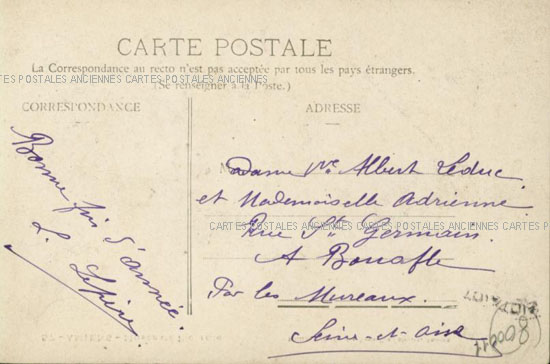 CARTE POSTALE
La Correspondance au recto n'est pas acceptée par tous les pays étrangers.
CARTES POSTALES ANCIENNES CARTES POSTALES ANCIENNES
(Se renseigner à la Poste.)
CORRESPONDANCE
ADRESSE
Bonne fin d'année
L.
Madame Vve Albert Leduc
et Mademoiselle Adrienne
CARTES POSTALES ANCIENNES CARTES POSTALES ANCIENNES
Rue St Germain
A Bouafle
Par les Mureaux.
Seine-et-Oise